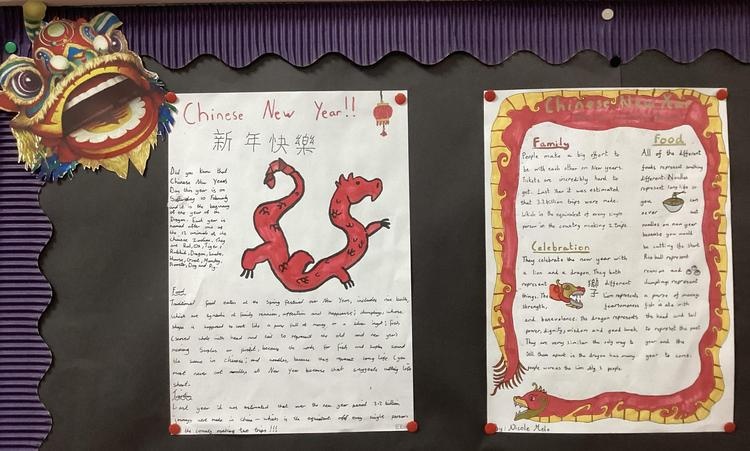 Chinese New Year!!
新年快樂
Did you know that
Chinese New Years
Day this year is on
Saturday 10 February
and it is the beginning
of the year of the
Dragon. Each year is
named after one of
the 12 animals of the
Chinese Zodiac. They
are Rat, Ox, Tiger,
Rabbit, Dragon, Snake,
Horse, Goat, Monkey,
Rooster, Dog and Pig.
Food
Traditional food eaten at the Spring festival or New Years, includes rice balls,
which are symbolic of family reunion, affection and happiness; dumplings, whose
shape is supposed to look like a purse full of money or a silver ingot; fish
(served whole with head and tail to represent the old and new years)
meaning Surplus or profit, because the words for fish and surplus sound
the same in Chinese; and noodles, because they represent long life (you
must never cut noodles at New Year because that suggests cutting life
short.
Last year it was estimated that over the new year period 3.2 billion
journeys were made in China - which is the equivalent of every single person
in the country making two trips!!!
Chinese New Year
Family
People make a big effort to
be with each other on New years.
Tickets are incredibly hard to
get. Last Year it was estimated
that 3.2 billion trips were made.
Which is the equivalent of every single
person in the country making 2 trips
Celebration
They celebrate the new year with
a lion and a dragon. They both
represent 獅子 different
things. The Lion represents
strength, fearsomeness
and benevolence. The dragon represents
power, dignity, wisdom and good luck.
They are very similar the only way to
tell them apart is the dragon has many
people worens the lion only 2 people.
Food
All of the different
foods represent something
different. Noodles
represent long life so
you can
never cut
noodles on new year
because you would
be cutting life short
Rice ball represent
reunion and
dumplings represent
a purse of money
fish is ate with
the head and tail
to represent the past
year and the
year to come.
by: Nicole Melo